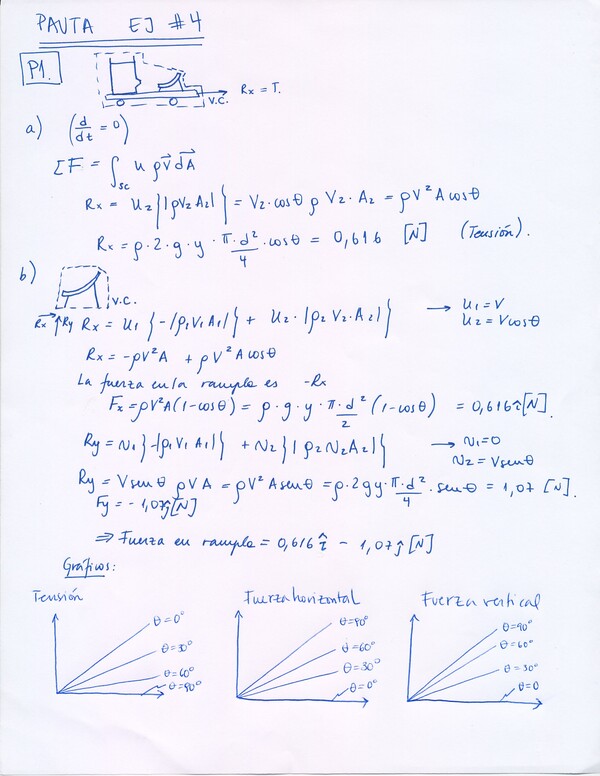 PAUTA EJ #4
P1.
Rx = T.
V.C.
a) (d/dt = 0)
ΣF = ∫sc u ρV⃗ dA⃗
Rx = U2{|ρV2A2|} = V2·cosθ ρ V2·A2 = ρV²A cosθ
Rx = ρ·2·g·y·π·d²/4·cosθ = 0,616 [N] (Tensión).
b)
V.C.
Rx Ry Rx = U1{-|ρ1V1A1|} + U2·{|ρ2V2·A2|} → U1 = V
U2 = Vcosθ
Rx = -ρV²A + ρV²A cosθ
La fuerza en la rampla es -Rx
Fx = ρV²A(1-cosθ) = ρ·g·y·π·d²/2 (1-cosθ) = 0,616 î [N].
Ry = N1{-|ρ1V1A1|} + N2{|ρ2N2A2|} → N1=0
N2 = Vsenθ
Ry = Vsenθ ρVA = ρV²A senθ = ρ·2gy·π·d²/4·senθ = 1,07 [N].
Fy = -1,07ĵ [N]
⇒ Fuerza en rampla = 0,616 î - 1,07 ĵ [N]
Gráficos:
Tensión
θ=0°
θ=30°
θ=60°
θ=90°
Fuerza horizontal
θ=90°
θ=60°
θ=30°
θ=0°
Fuerza vertical
θ=90°
θ=60°
θ=30°
θ=0